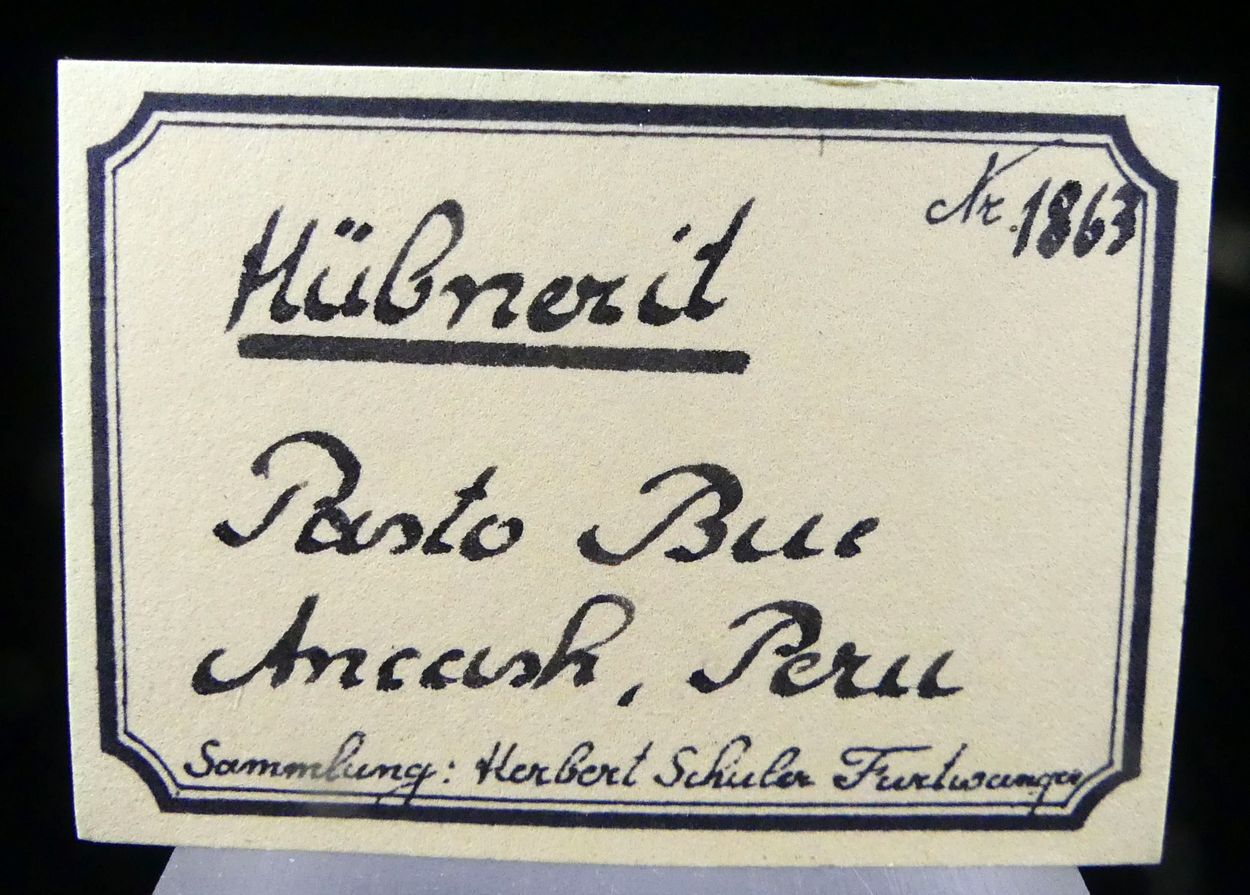 Nr. 1863
Hübnerit
Pasto Bue
Ancash, Peru
Sammlung: Herbert Schuler Furtwangen